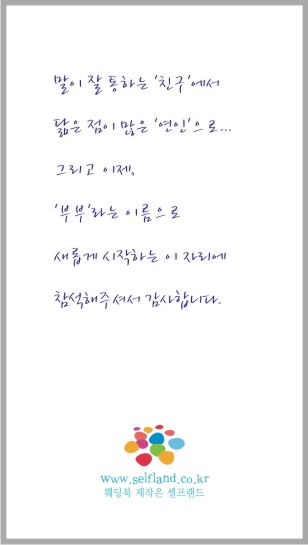 말이 잘 통하는 '친구'에서
닮은 점이 많은 '연인'으로...
그리고 이제,
'부부'라는 이름으로
새롭게 시작하는 이 자리에
참석해주셔서 감사합니다.
www.selfland.co.kr
웨딩북 제작은 셀프랜드